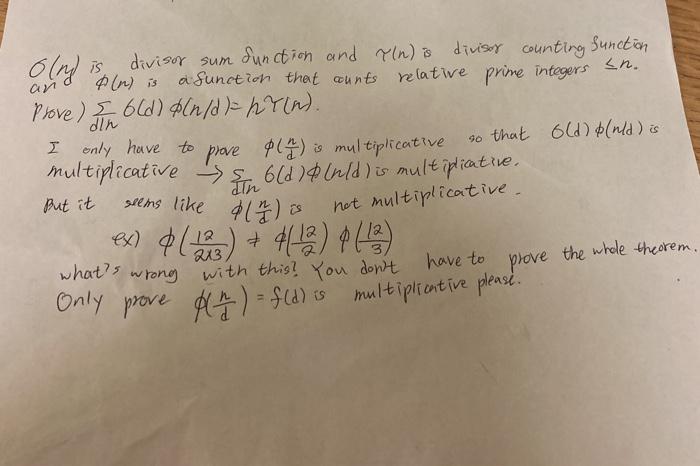 σ(n) is divisor sum function and τ(n) is divisor counting function
and φ(n) is a function that counts relative prime integers ≤n.
Prove) Σ_{d|n} σ(d) φ(n/d) = nτ(n).
I only have to prove φ(n/d) is multiplicative so that σ(d)φ(n/d) is
multiplicative → Σ_{d|n} σ(d)φ(n/d) is multiplicative.
But it seems like φ(n/d) is not multiplicative.
ex) φ(12/2×3) ≠ φ(12/2) φ(12/3)
what's wrong with this? You don't have to prove the whole theorem.
Only prove φ(n/d) = f(d) is multiplicative please.